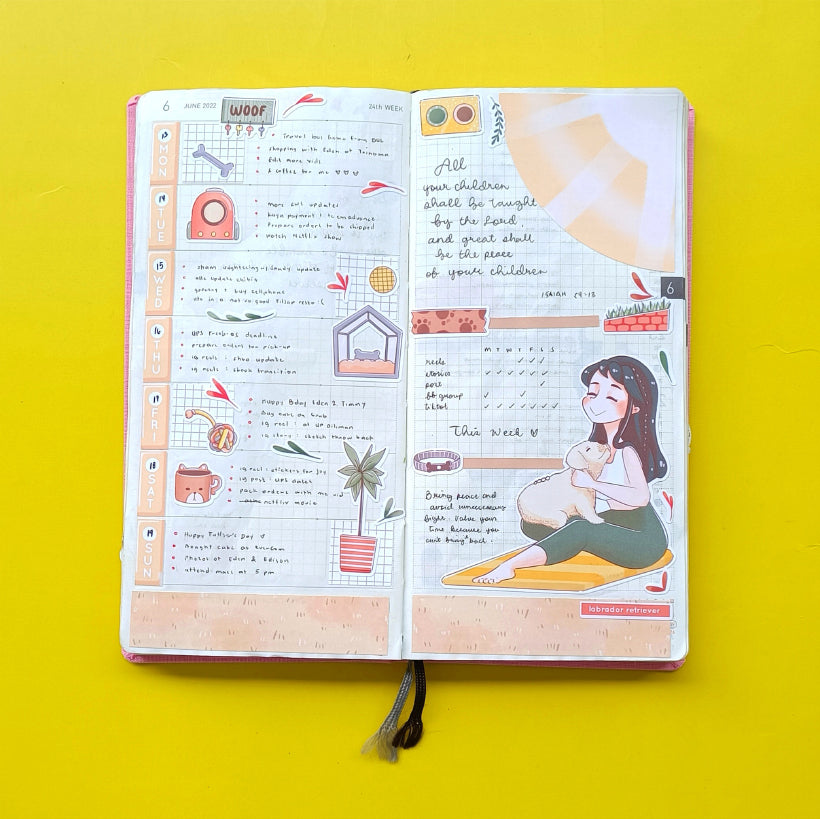 6 JUNE 2022
WOOF
24th WEEK
13
MON
Travel bus home from
shopping with Eden at
Edit more vids
& coffee for me
14
TUE
updates
payment
Prepare orders to be shipped
watch Netflix show
15
WED
update
update
grocery + buy cellphone
in a not so good
16
THU
deadline
prepare orders for pick-up
ig reels : shop update
ig reels : ebook transition
17
FRI
Happy Bday Eden & Timmy
Buy cake on Grab
ig reel : at UP Diliman
ig story : sketch throw back
18
SAT
ig reel : stickers for joy
ig post : UPS dates
pack orders with me vid
netflix movie
19
SUN
Happy Father's Day
Bought cake at
Photos of Eden & Edison
attend mass at 5 pm
All
your children
shall be taught
by the Lord,
and great shall
be the peace
of your children
ISAIAH
6
M T W T F S S
reels
stories
post
fb group
tiktok
This Week
Bring peace and
avoid unnecessary
fight. Value your
time because you
can't bring back.
labrador retriever